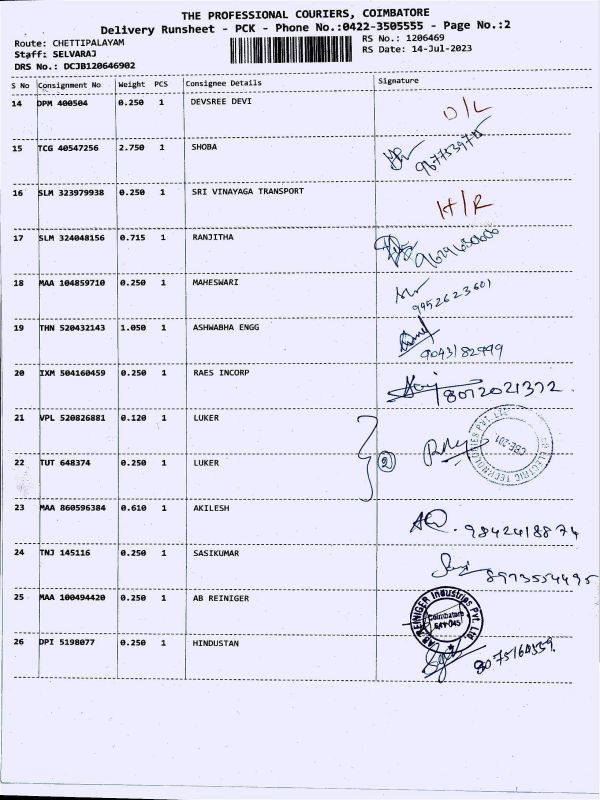 THE PROFESSIONAL COURIERS, COIMBATORE
Delivery Runsheet - PCK - Phone No.:0422-3505555 - Page No.:2
Route: CHETTIPALAYAM
RS No.: 1206469
Staff: SELVARAJ
RS Date: 14-Jul-2023
DRS No.: DCJB120646902
S No Consignment No Weight PCS Consignee Details Signature
14 DPM 400504 0.250 1 DEVSREE DEVI O/L
15 TCG 40547256 2.750 1 SHOBA
16 SLM 323979938 0.250 1 SRI VINAYAGA TRANSPORT H/R
17 SLM 324048156 0.715 1 RANJITHA
18 MAA 104859710 0.250 1 MAHESWARI
9952623601
19 THN 520432143 1.050 1 ASHWABHA ENGG
9043182999
20 IXM 504160459 0.250 1 RAES INCORP 8072021372
21 VPL 520826881 0.120 1 LUKER
2
22 TUT 648374 0.250 1 LUKER
CBE-201
23 MAA 860596384 0.610 1 AKILESH 9842418874
24 TNJ 145116 0.250 1 SASIKUMAR
8973554495
25 MAA 100494420 0.250 1 AB REINIGER
AB REINIGER Industries Pvt. Ltd.
Coimbatore
26 DPI 5198077 0.250 1 HINDUSTAN